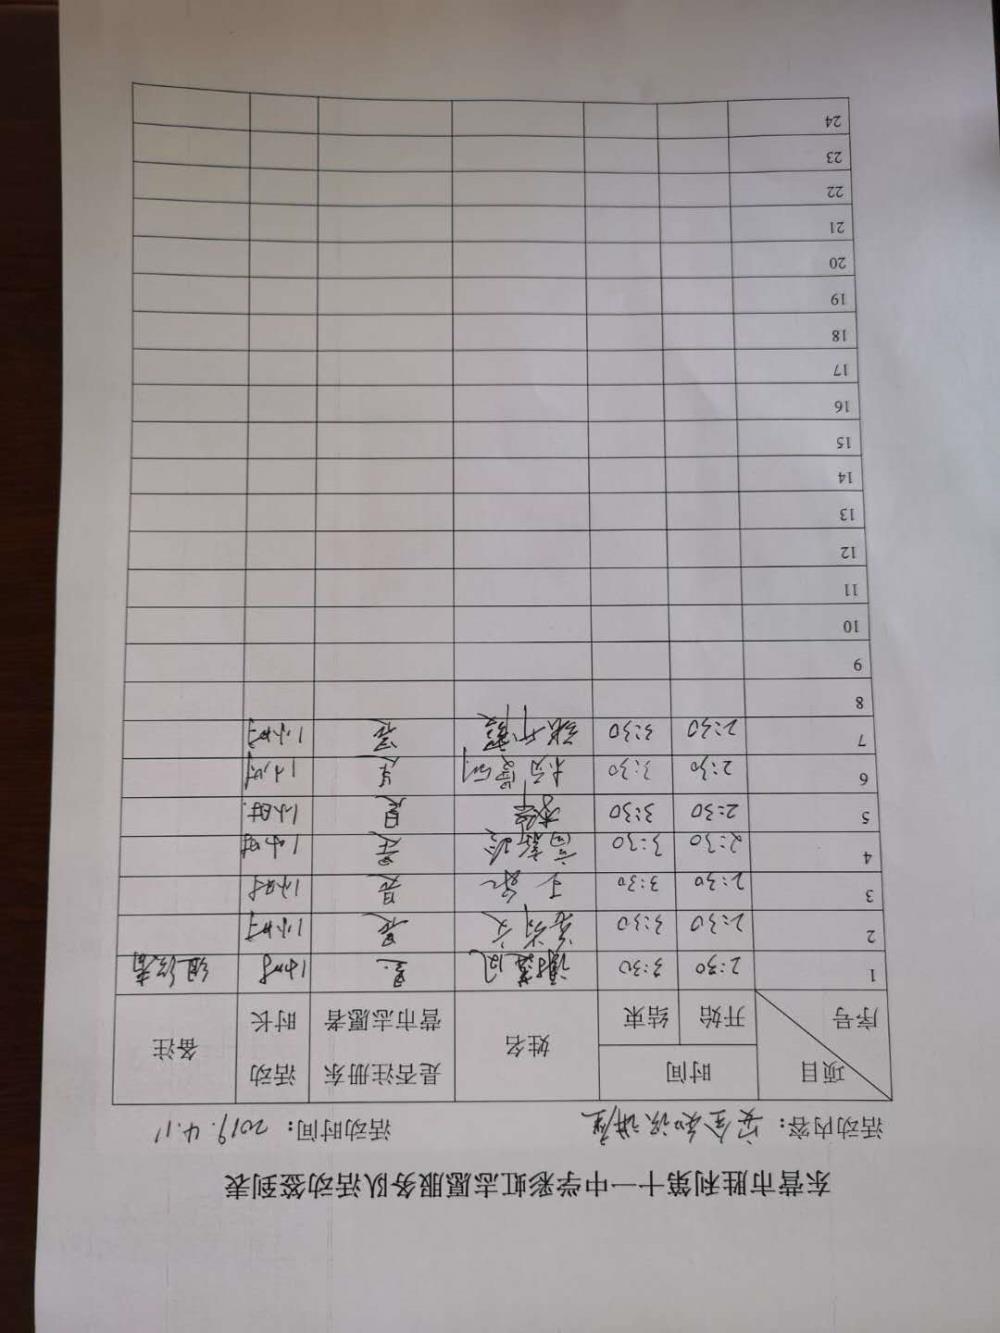 东营市胜利第十一中学彩虹志愿服务队活动签到表
活动内容：安全知识讲座 活动时间：2019.4.11
项目 序号 时间 开始 结束 姓名 是否注册东营市志愿者 活动时长 备注
1 2:30 3:30 是 1小时 组织者
2 2:30 3:30 是 1小时
3 2:30 3:30 是 1小时
4 2:30 3:30 是 1小时
5 2:30 3:30 是 1小时
6 2:30 3:30 是 1小时
7 2:30 3:30 是 1小时
8
9
10
11
12
13
14
15
16
17
18
19
20
21
22
23
24